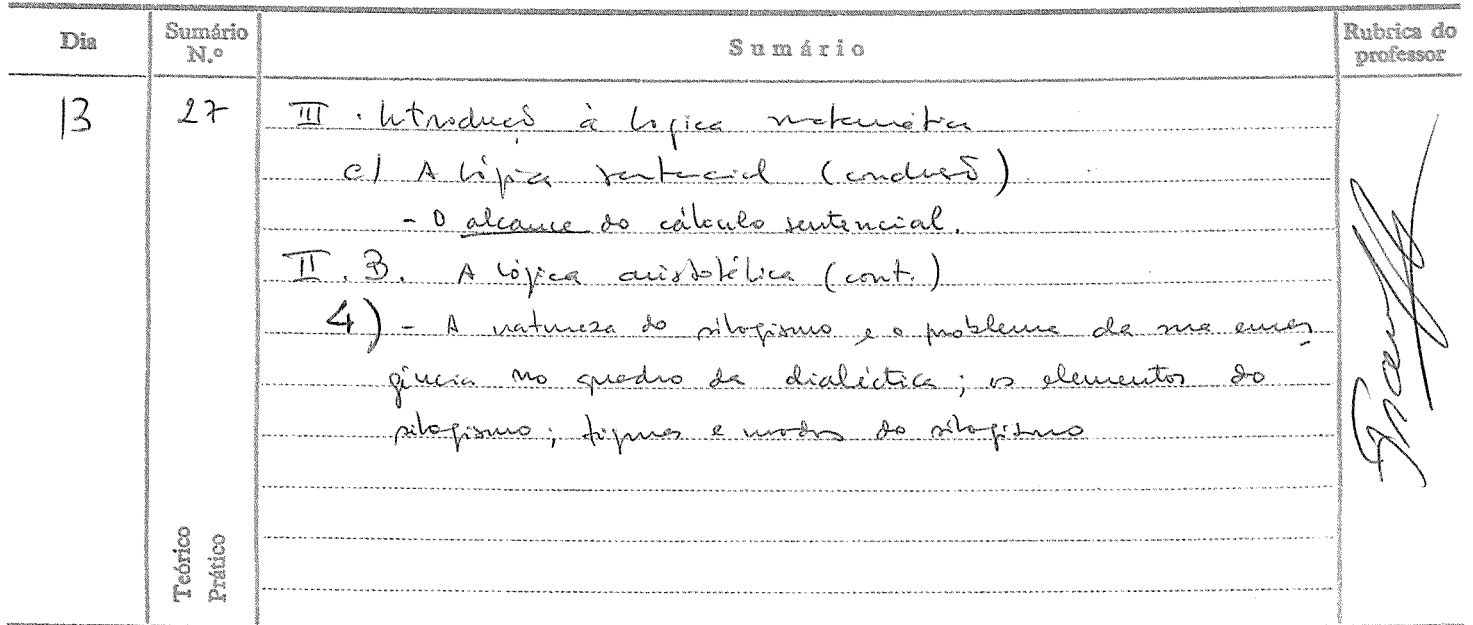 Dia Sumário N.º Sumário Rubrica do professor
13 27 III . Introdução à lógica matemática
c) A lógica sentencial (conclusão)
- O alcance do cálculo sentencial.
II . B. A lógica aristotélica (cont.)
4) - A natureza do silogismo e o problema da sua emer
gência no quadro da dialéctica; os elementos do
silogismo; figuras e modos do silogismo
Teórico
Prático